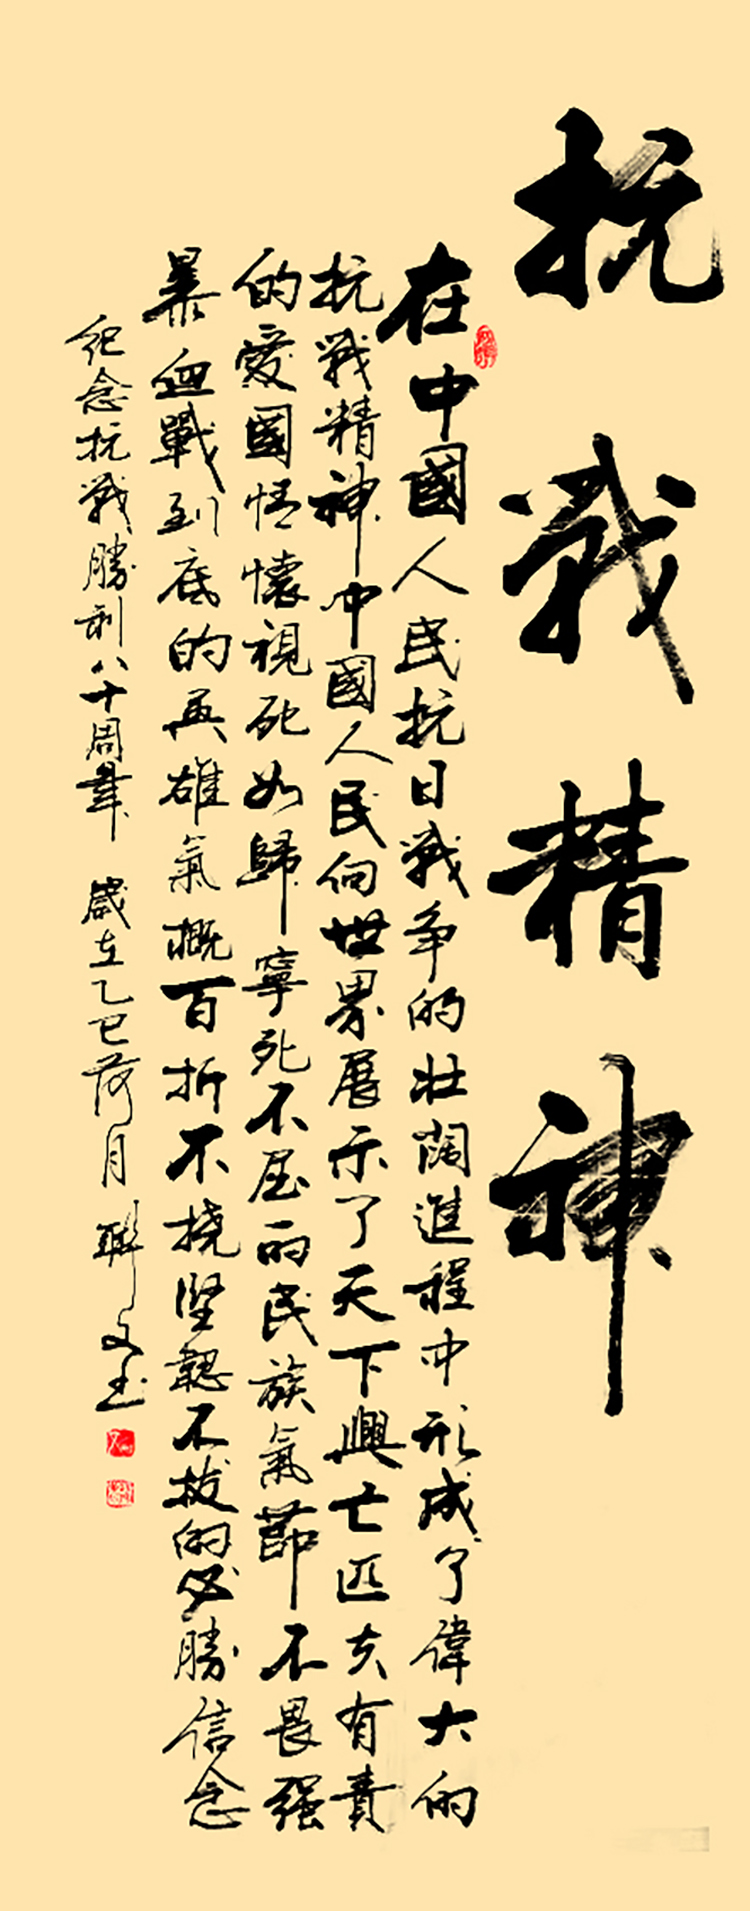 抗戰精神
在中國人民抗日戰争的壮阔進程中形成了偉大的
抗戰精神中國人民向世界展示了天下興亡匹夫有責
的愛國情懷視死如歸寧死不屈的民族氣節不畏强
暴血戰到底的英雄氣概百折不撓堅韌不拔的必勝信念
紀念抗戰勝利八十周年 歲在乙巳荷月 聯文书